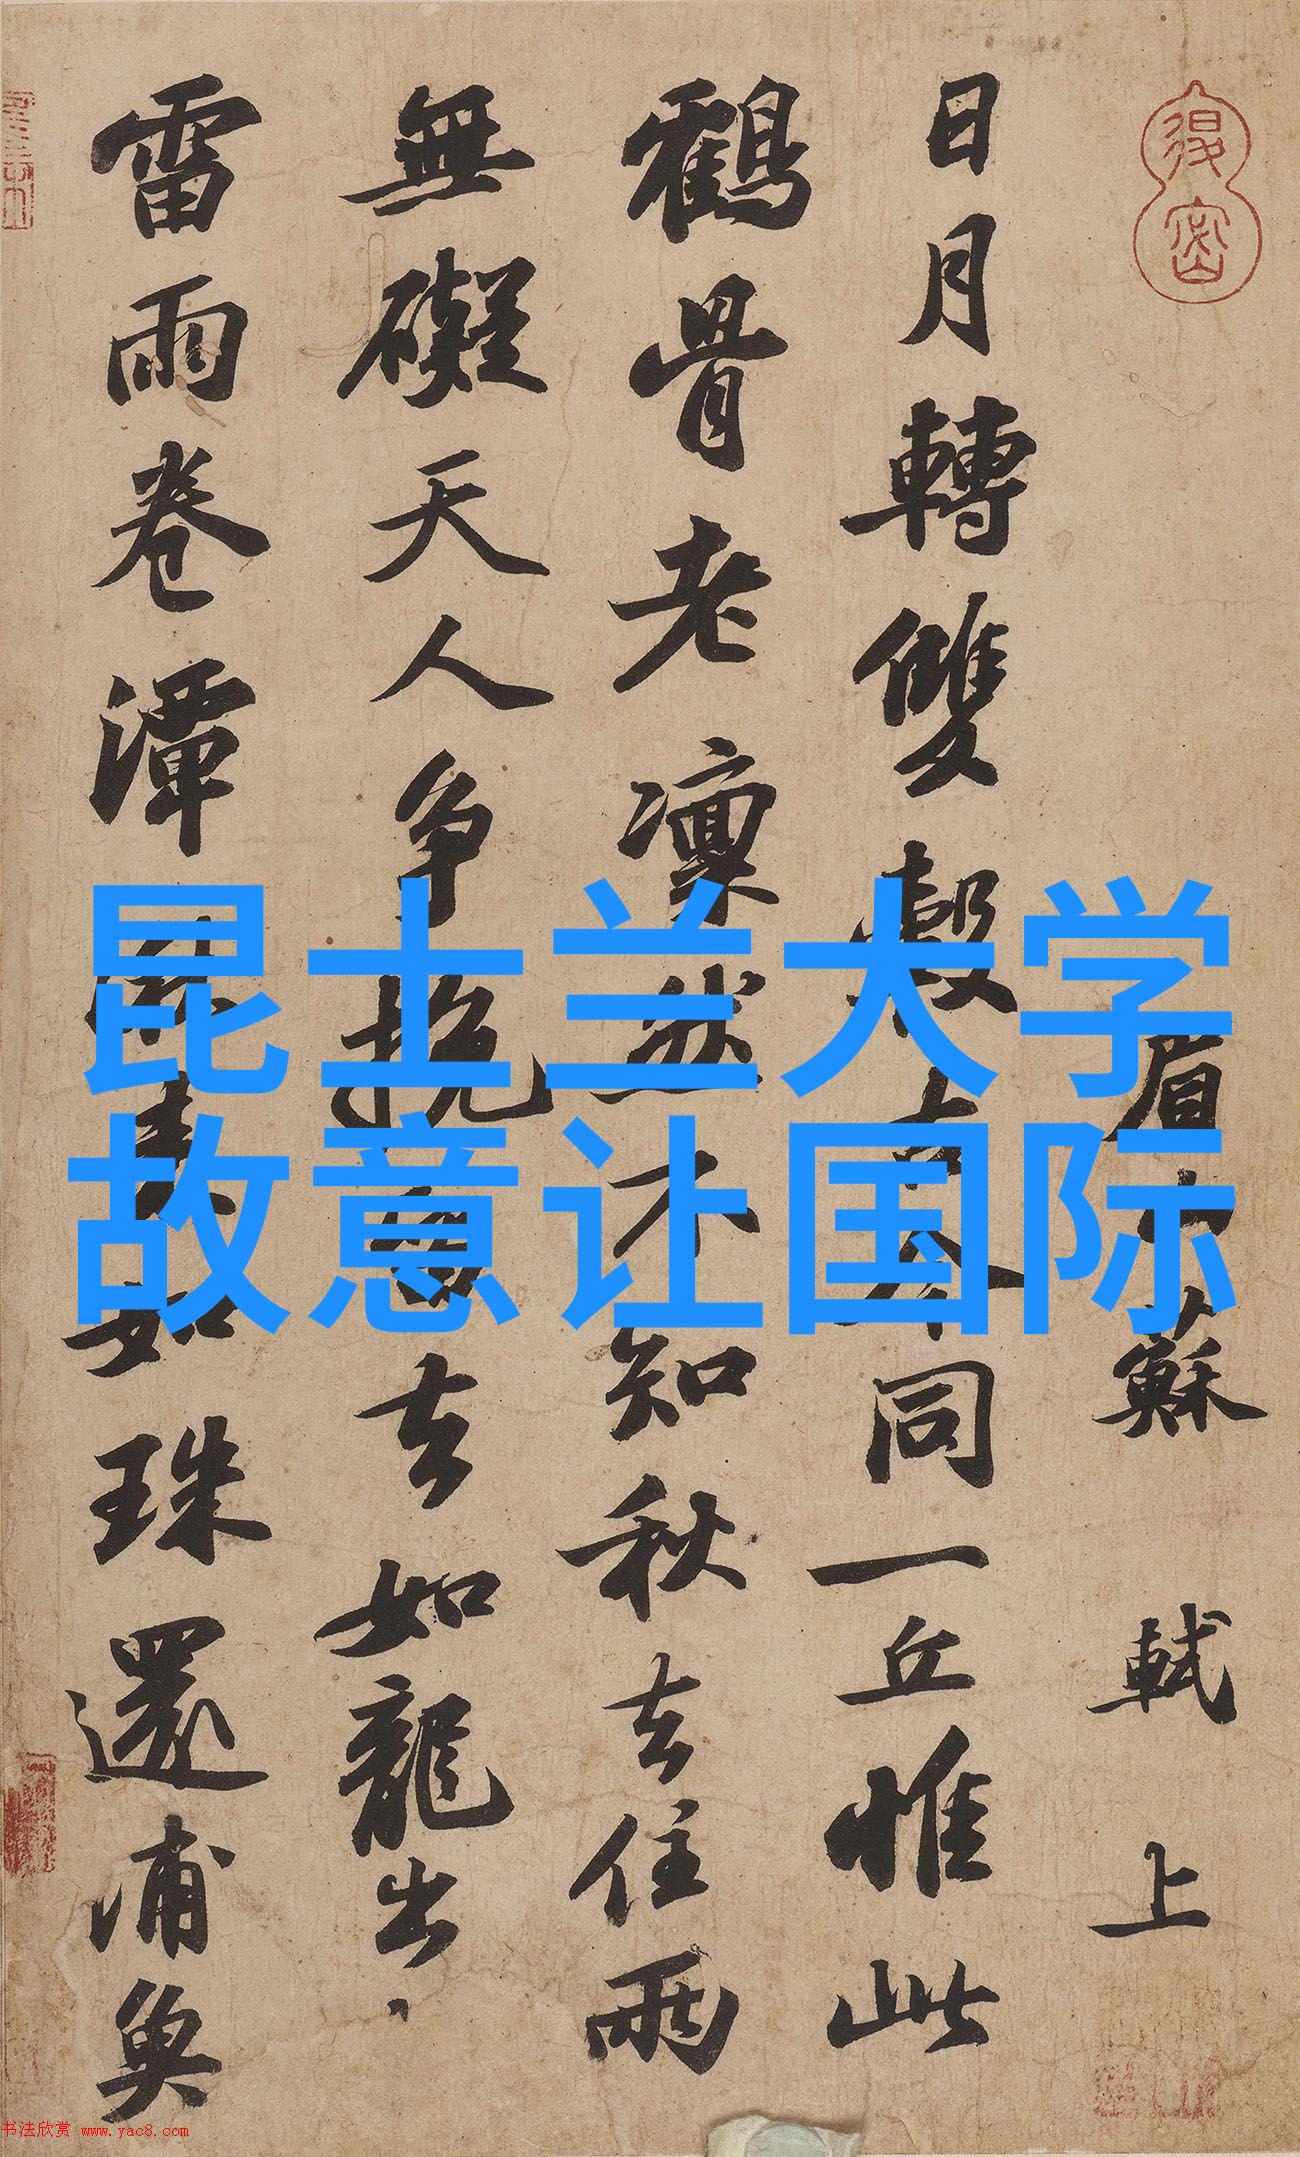 眉山蘇軾上
日月轉雙轂古今同一丘惟此
鶴骨老凜然不知秋去住兩
無礙天人争挽留去如龍出
雷雨卷潭湫来如珠還浦魚
昆士兰大学
故意让国际
书法欣赏 www.yac8.com